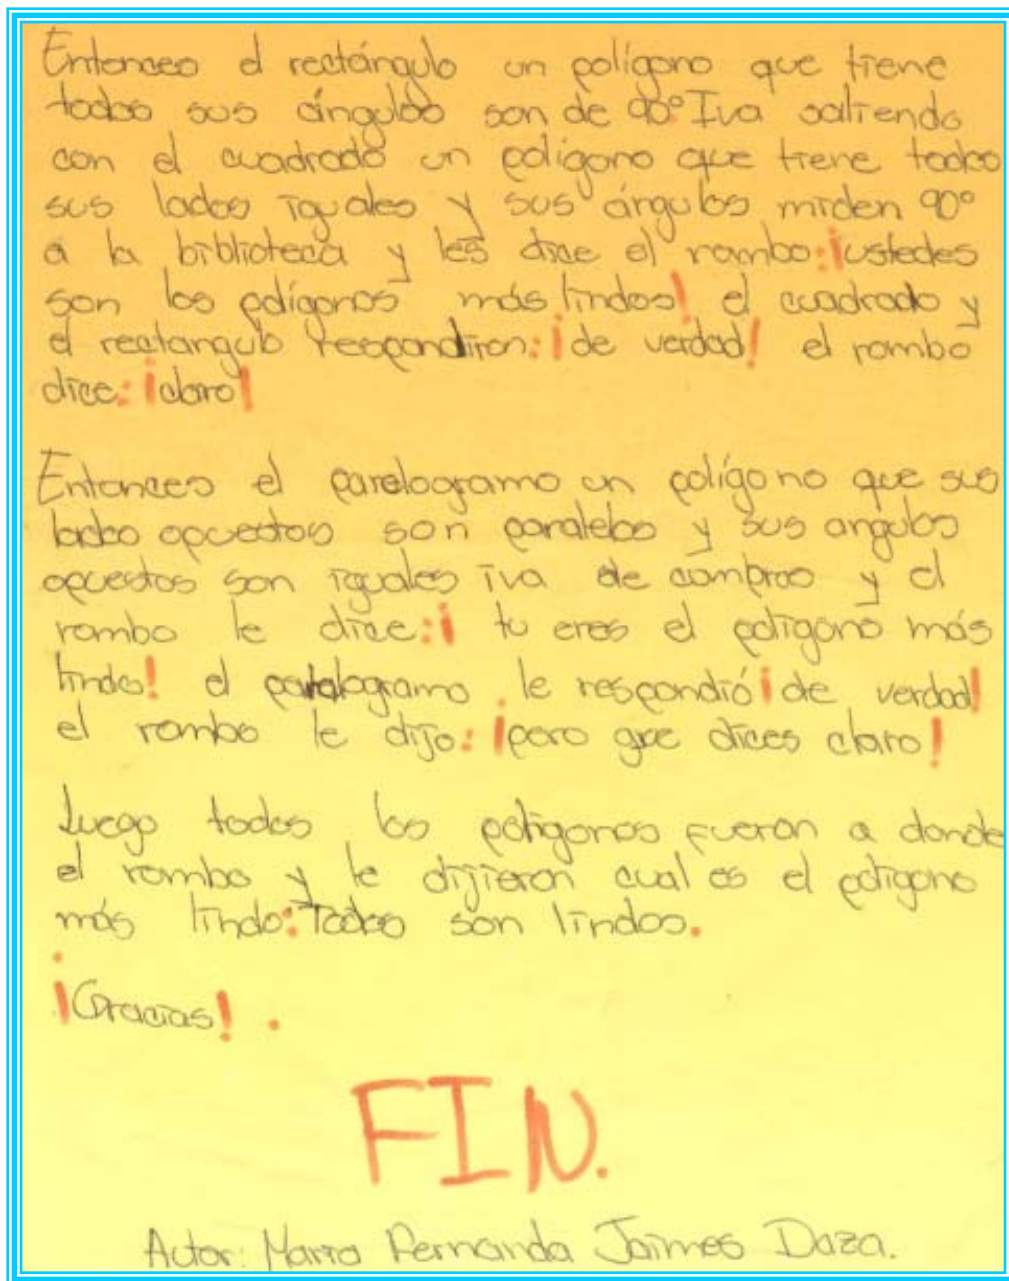 Entonces el rectángulo un polígono que tiene
todos sus ángulos son de 90° Iva saliendo
con el cuadrado un polígono que tiene todos
sus lados iguales y sus ángulos miden 90°
a la biblioteca y les dice el rombo: ¡ustedes
son los polígonos más lindos! el cuadrado y
el rectangulo respondiron: ¡de verdad! el rombo
dice: ¡claro!
Entonces el parelogramo un polígono que sus
lados opuestos son paralelos y sus angulos
opuestos son iguales iva de compras y el
rombo le dice: ¡ tu eres el poligono más
lindo! el paralogramo le respondió ¡de verdad!
el rombo le dijo: ¡pero que dices claro!
Luego todos los poligonos fueron a donde
el rombo y le dijieron cual es el poligono
más lindo: Todos son lindos.
¡Gracias! .
FIN.
Autor: Maria Fernanda Jaimes Daza.